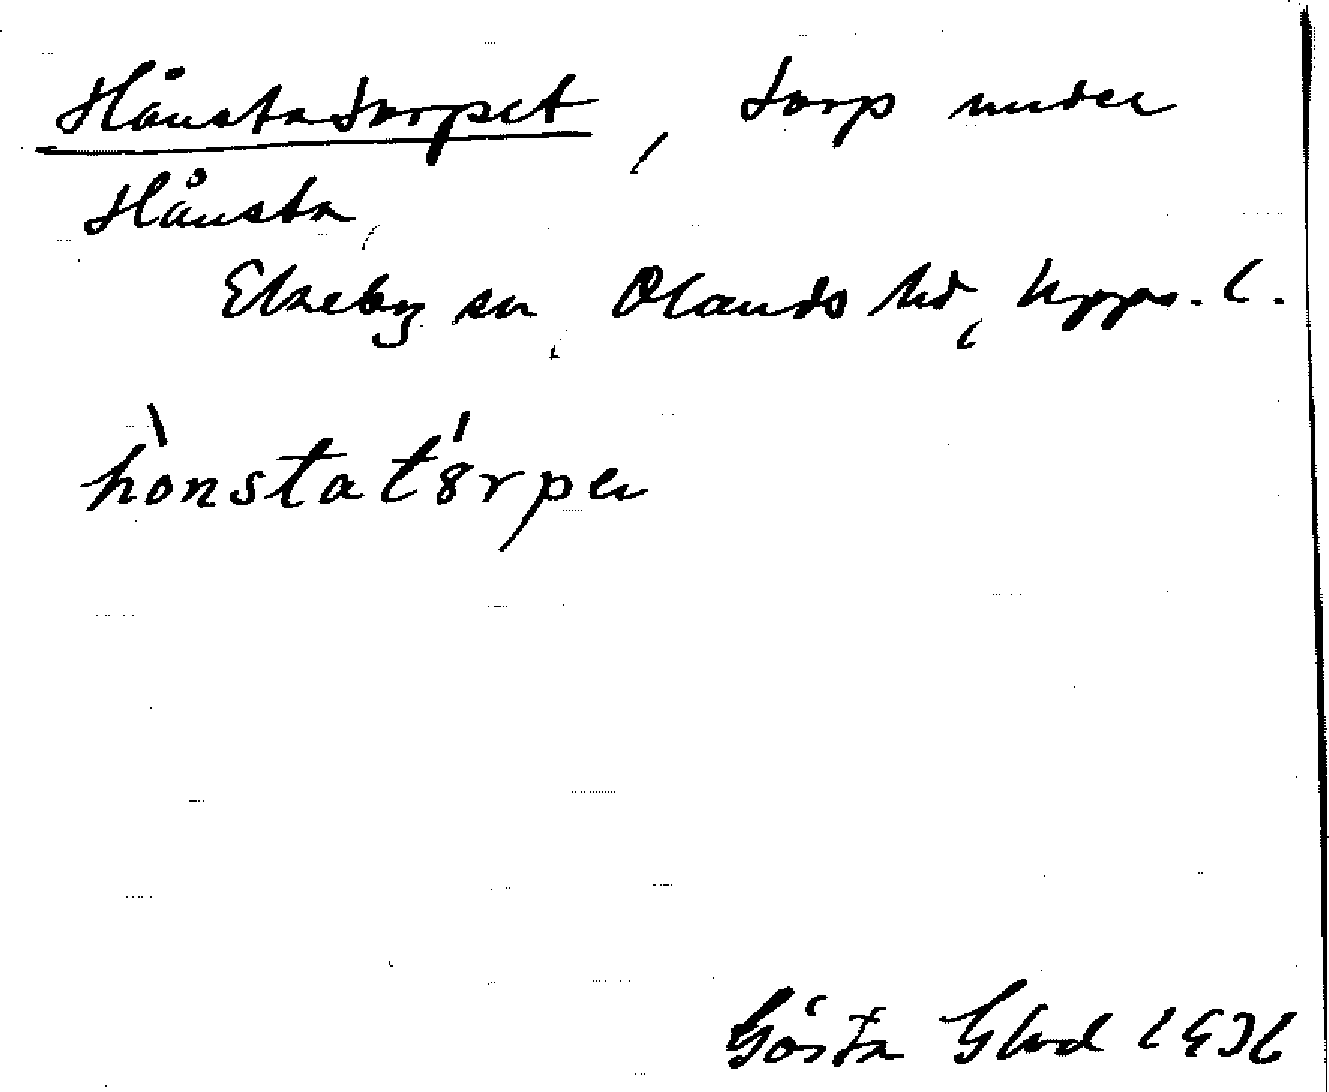 Hånstatorpet, torp under
Hånsta,
Ekeby sn, Olands hd, Upps. l.
hònstatórpeɩ
Gösta 1936